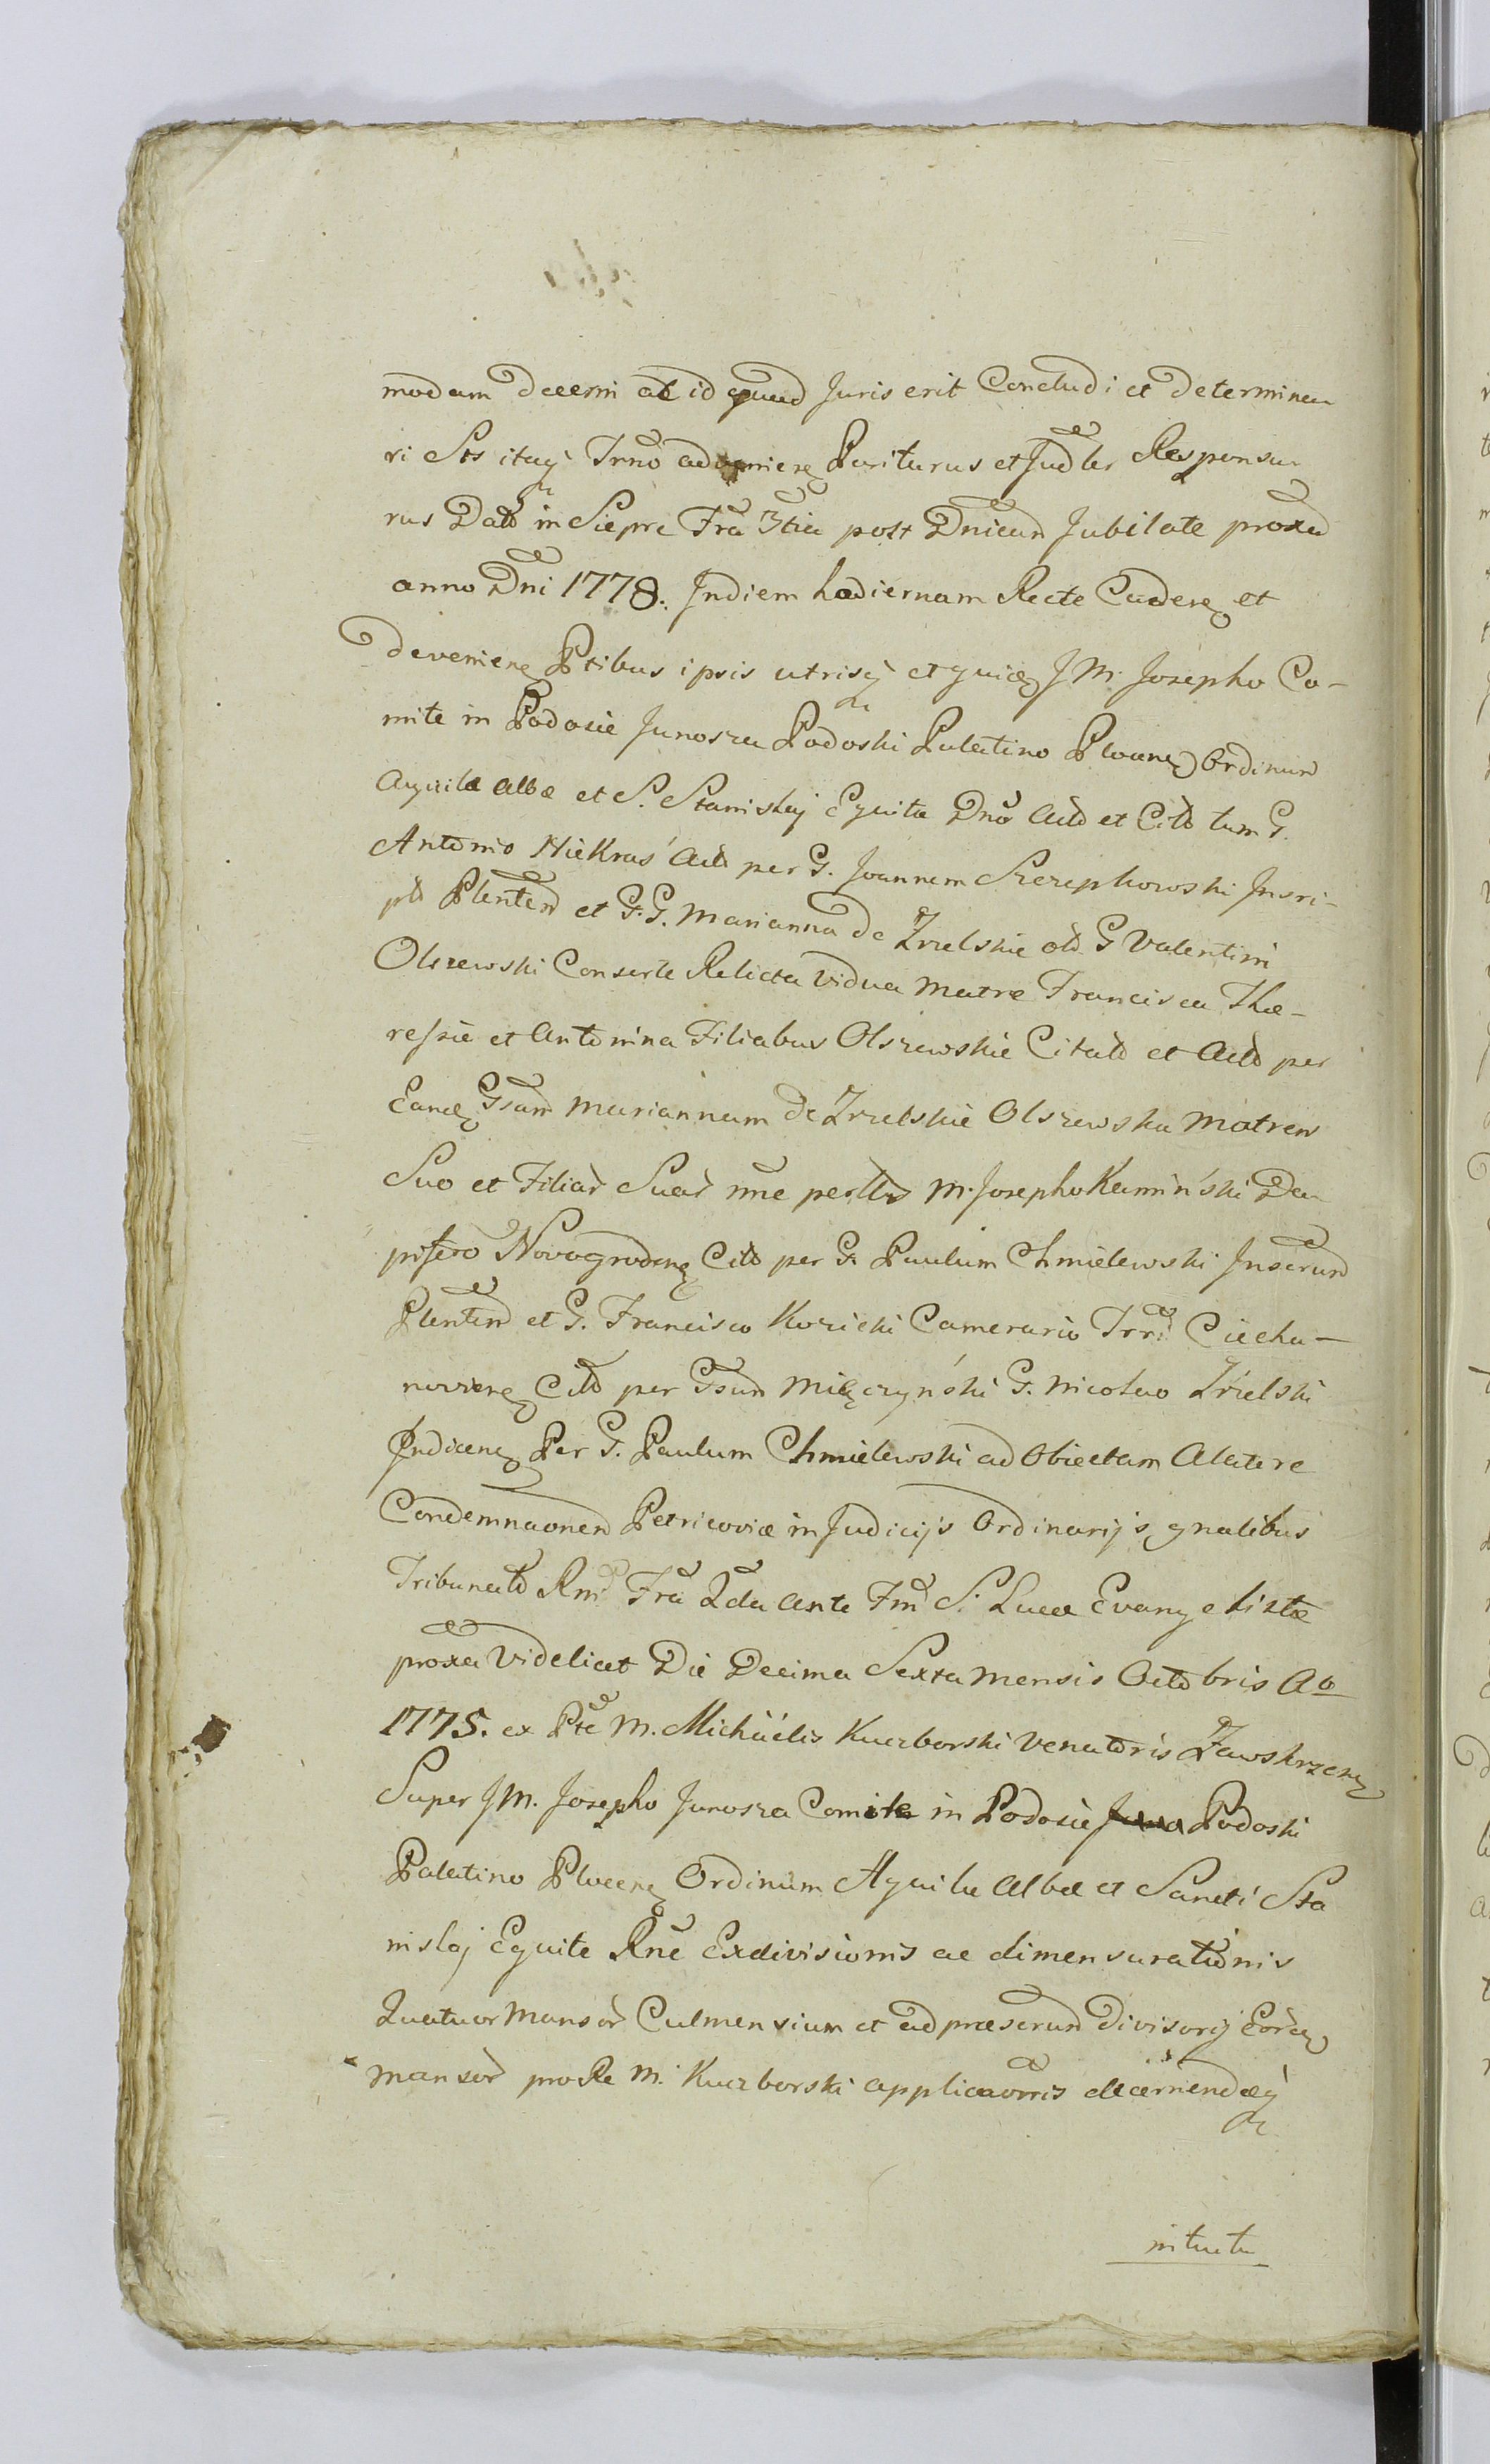 modum decerni ac id quod Juris erit Concludi et determina
ri Sis itaq Trno adveniens Pariturus et Judlr Responsu
rus Datt in Sieprc Fra 3tia post Dnicam Jubilate proxa
anno Dni 1778. Indiem hodiernam Recte Caden et
devenien Ptibus ipsis utrisq et quidem J M. Josepho Co-
mite in Podosie Junosza Podoski Palatino Plocen Ordinum
Aquila albæ et S. Stanislaj Equite Dno Act et Citt tum G.
Antonio Niekraś Act per G. Joannem Szczepkowski Inscri-
ptt Plenten et G.G. Marianna de Zrzelskie ol. G Valentini
Olszewski Consorte Relicta Vidua Matre Francisca The-
ressia et Antonina Filiabus Olszewskie Citatt et Actt per
Eand Gsam Mariannam de Zrzelskie Olszewska Matrem
Suo et Filiar Suar nne pertt M. Josepho Kamiński Da
pifero Novogroden Citt per G. Paulum Chmielewski Inscrum
Plenten et G. Francisco Kozicki Camerario Trri Ciecha-
novien Citt per Gsum Milęczyński G. Nicolao Zrzelski
Indicen Per G. Paulum Chmielewski ad Obiectam Alatere
Condemnaonem Petricoviæ in Judicijs Ordinarijs gnalibus
Tribunatt Rni Fra 2da ante Fm S. Lucæ Evangelistæ
proxa Videlicet Die Decima Sexta Mensis Octobris Ao
1775. ex Pte M. Michäelis Kuczborski Venatoris Zawskrzen
Super J M. Josepho Junosza Comite in Podosie Podoski
Palatino Plocen Ordinum Aquilæ Albæ et Sancti Sta
nislaj Equite Rne Exdivisionis ac dimensurationis
Quatuor Mansor Culmensium et ad præserum divisorij Eord
Mansor pro Re M. Kuczborski applicaonis decernendæq
intuitu